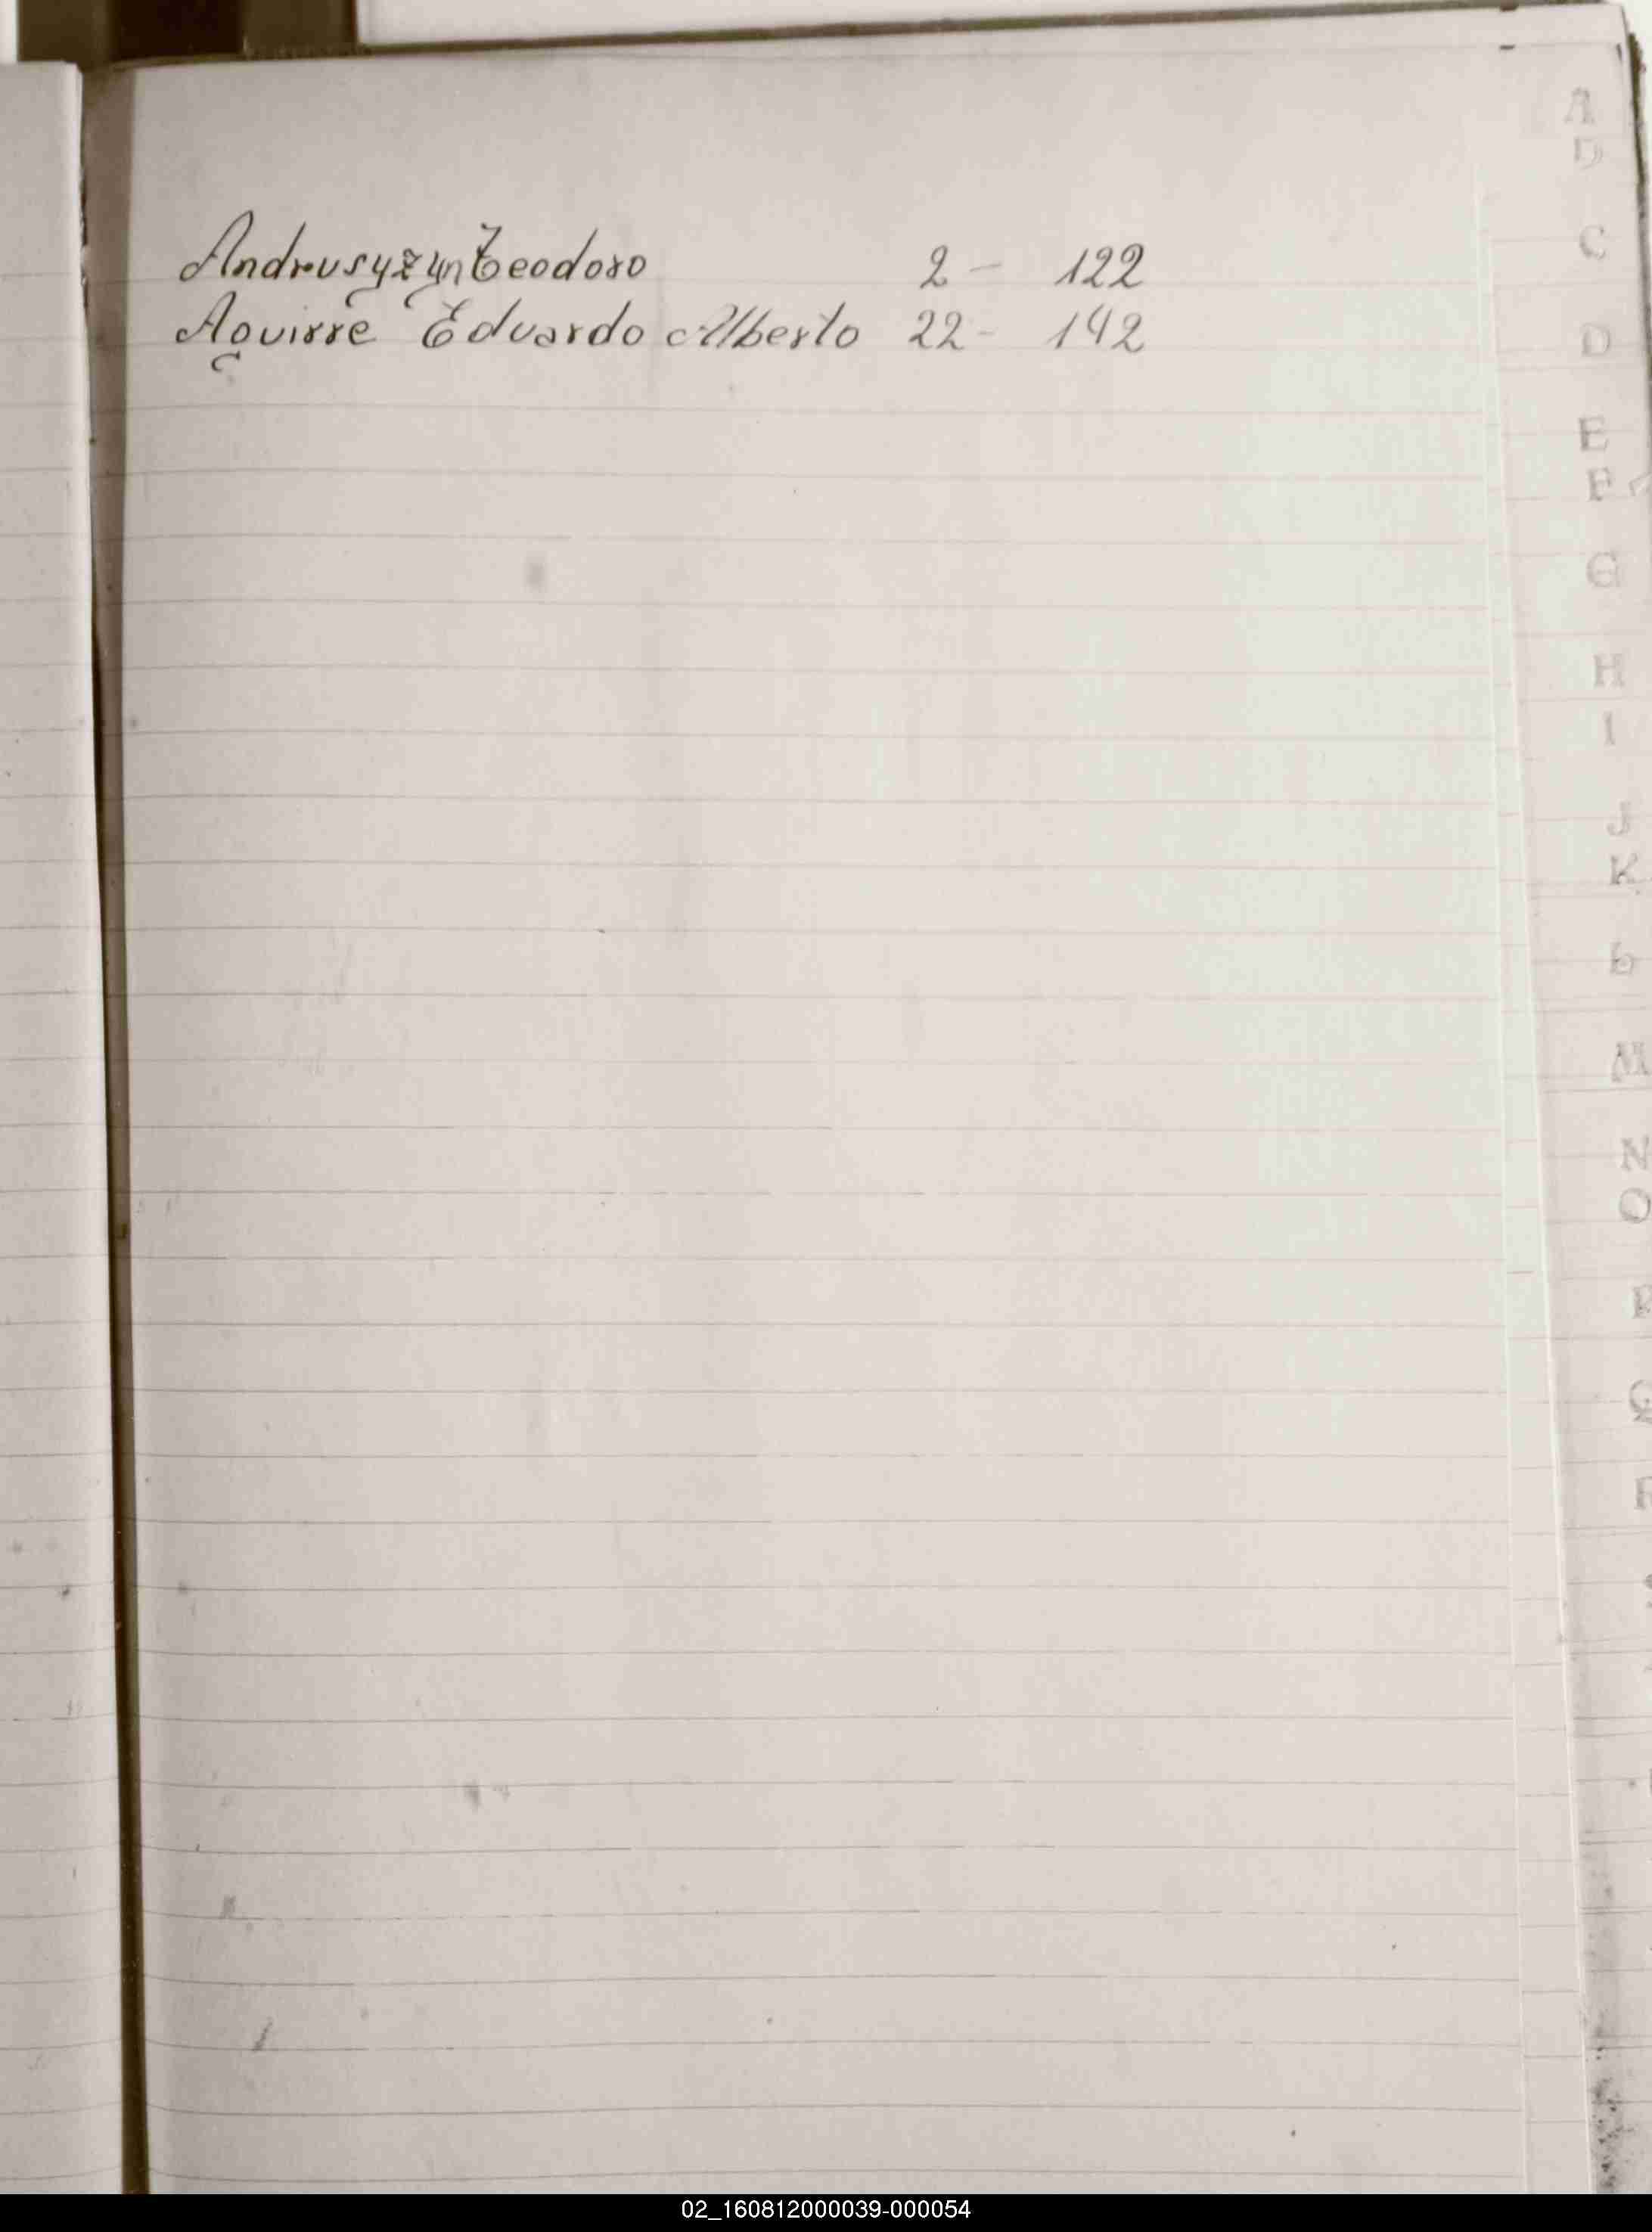 Andrusyzyn Teodoro 2 - 122
Aguirre Eduardo Alberto 22 - 142
A
D
C
D
E
F
G
H
I
J
K
L
M
N
O
P
Q
R
02_160812000039-000054